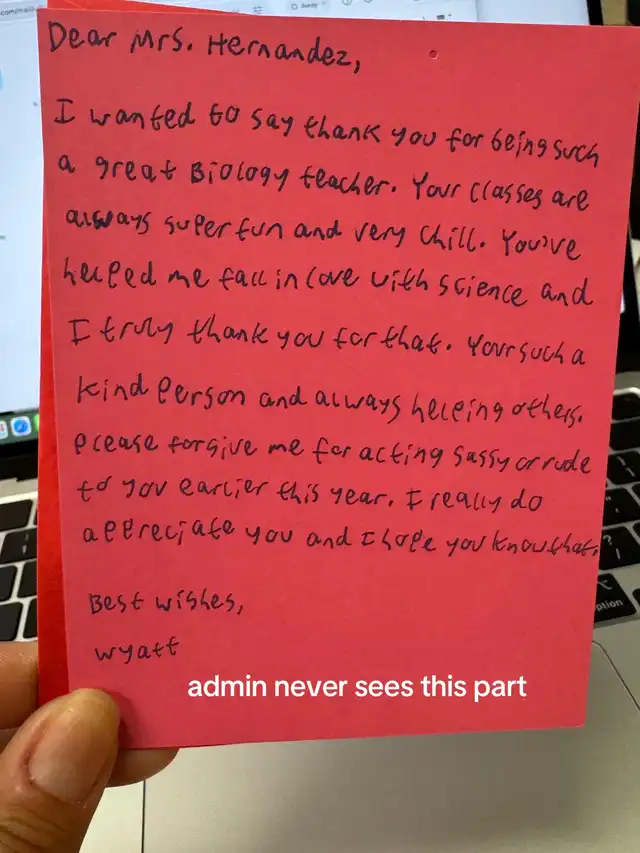 Dear Mrs. Hernandez,
I wanted to say thank you for being such
a great Biology teacher. Your classes are
always super fun and very chill. You've
helped me fall in love with science and
I truly thank you for that. Your such a
kind person and always helping others.
please forgive me for acting sassy or rude
to you earlier this year. I really do
appreciate you and I hope you know that.
Best wishes,
Wyatt
admin never sees this part
option